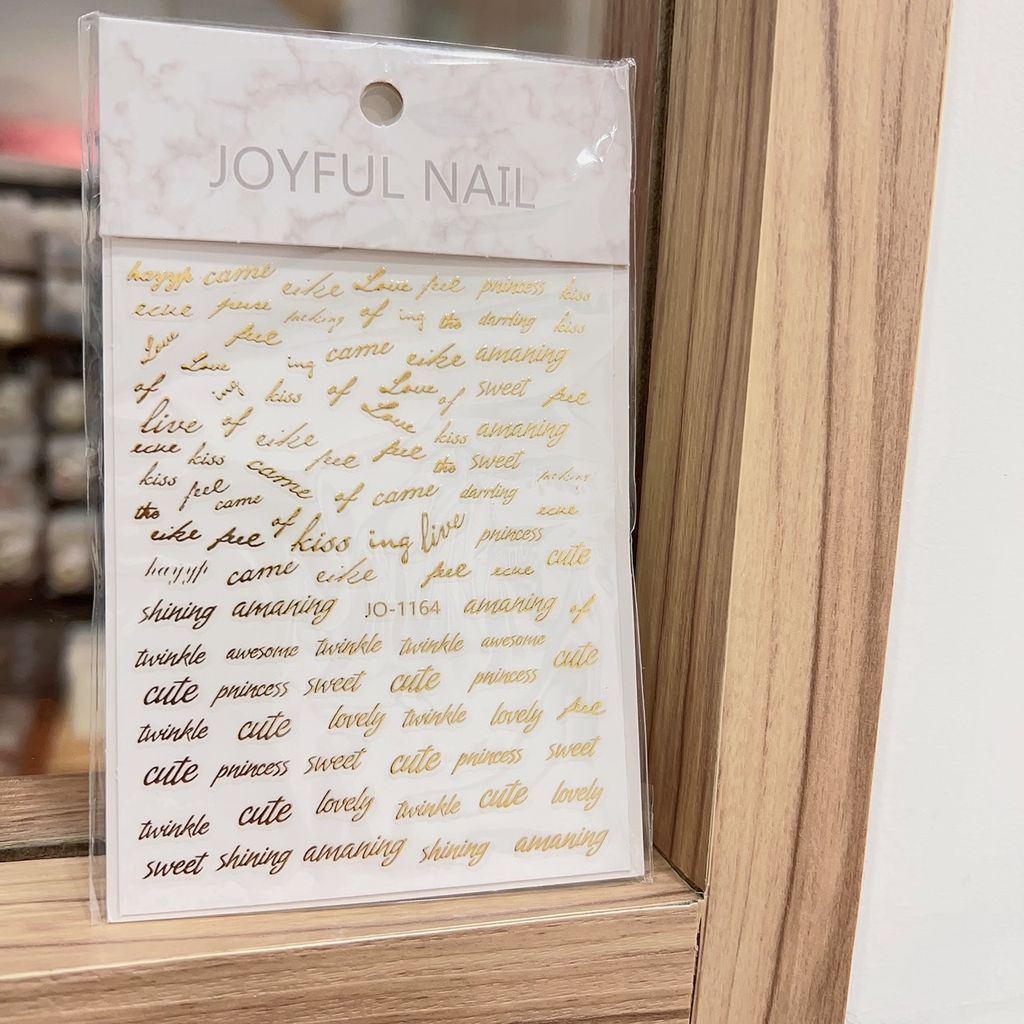 JOYFUL NAIL
hayyp came eike Love feel princess kiss
ecue of ing the darrling kiss
Love feel came eike amaning
Love ing
of ing kiss of Love of sweet feel
live of eike Love kiss amaning
ecue kiss came feel feel the sweet
kiss feel came of came darrling
the eike feel of kiss ing live princess ecue
hayyp came eike feel ecue cute
shining amaning JO-1164 amaning of
twinkle awesome twinkle twinkle awesome
cute princess sweet cute princess cute
twinkle cute lovely twinkle lovely feel
cute princess sweet cute princess sweet
twinkle cute lovely twinkle cute lovely
sweet shining amaning shining amaning